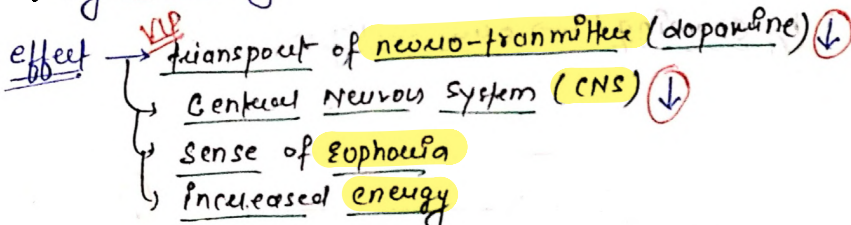 VIP
effect → transport of neuro-tranmitter (dopamine) ↓
Central Neurous System (CNS) ↓
Sense of Euphoria
increased energy